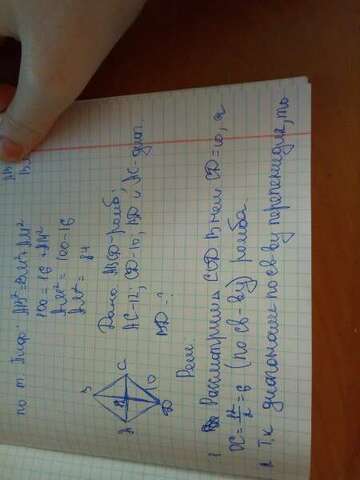 по т. Пиф: AB²=BM²+AM²
100=16+AM²
AM²=100-16
AM²=84
Дано: ABCD-ромб;
AC=12; CD=10; BD и AC-диаг.
BD-?
B
A
C
D
12
10
Реш:
1 Рассмотрим △ COD В нем CD=10, а
OC=12/2=6 (по св-ву) ромба.
2 Т.к диагонали по св-ву перпендик., то
AB
BM